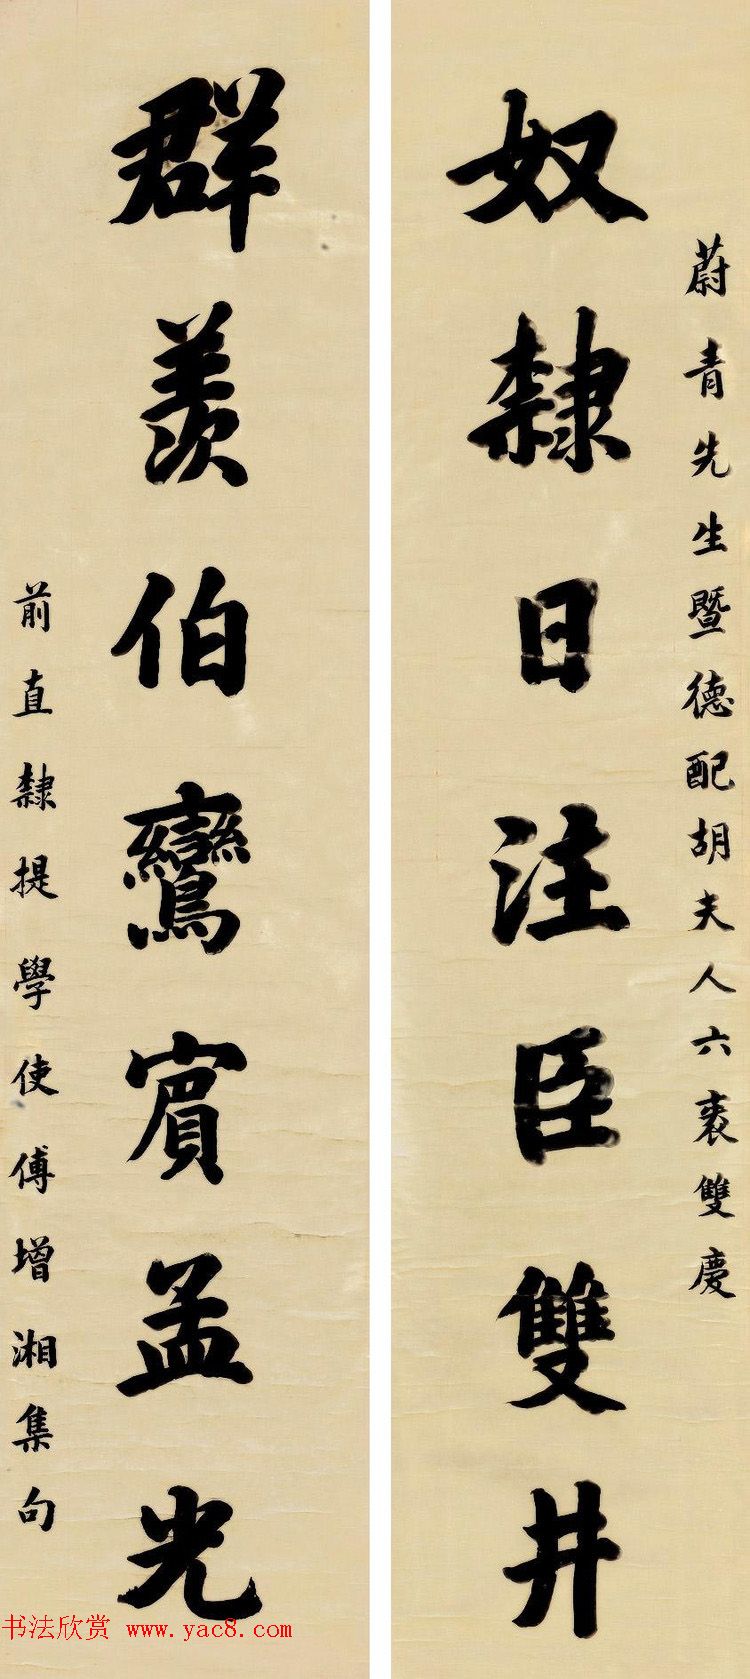 蔚青先生暨德配胡夫人六袠雙慶
奴隸日注臣雙井
群羡伯鸞賓孟光
前直隸提學使傅增湘集句
书法欣赏 www.yac8.com